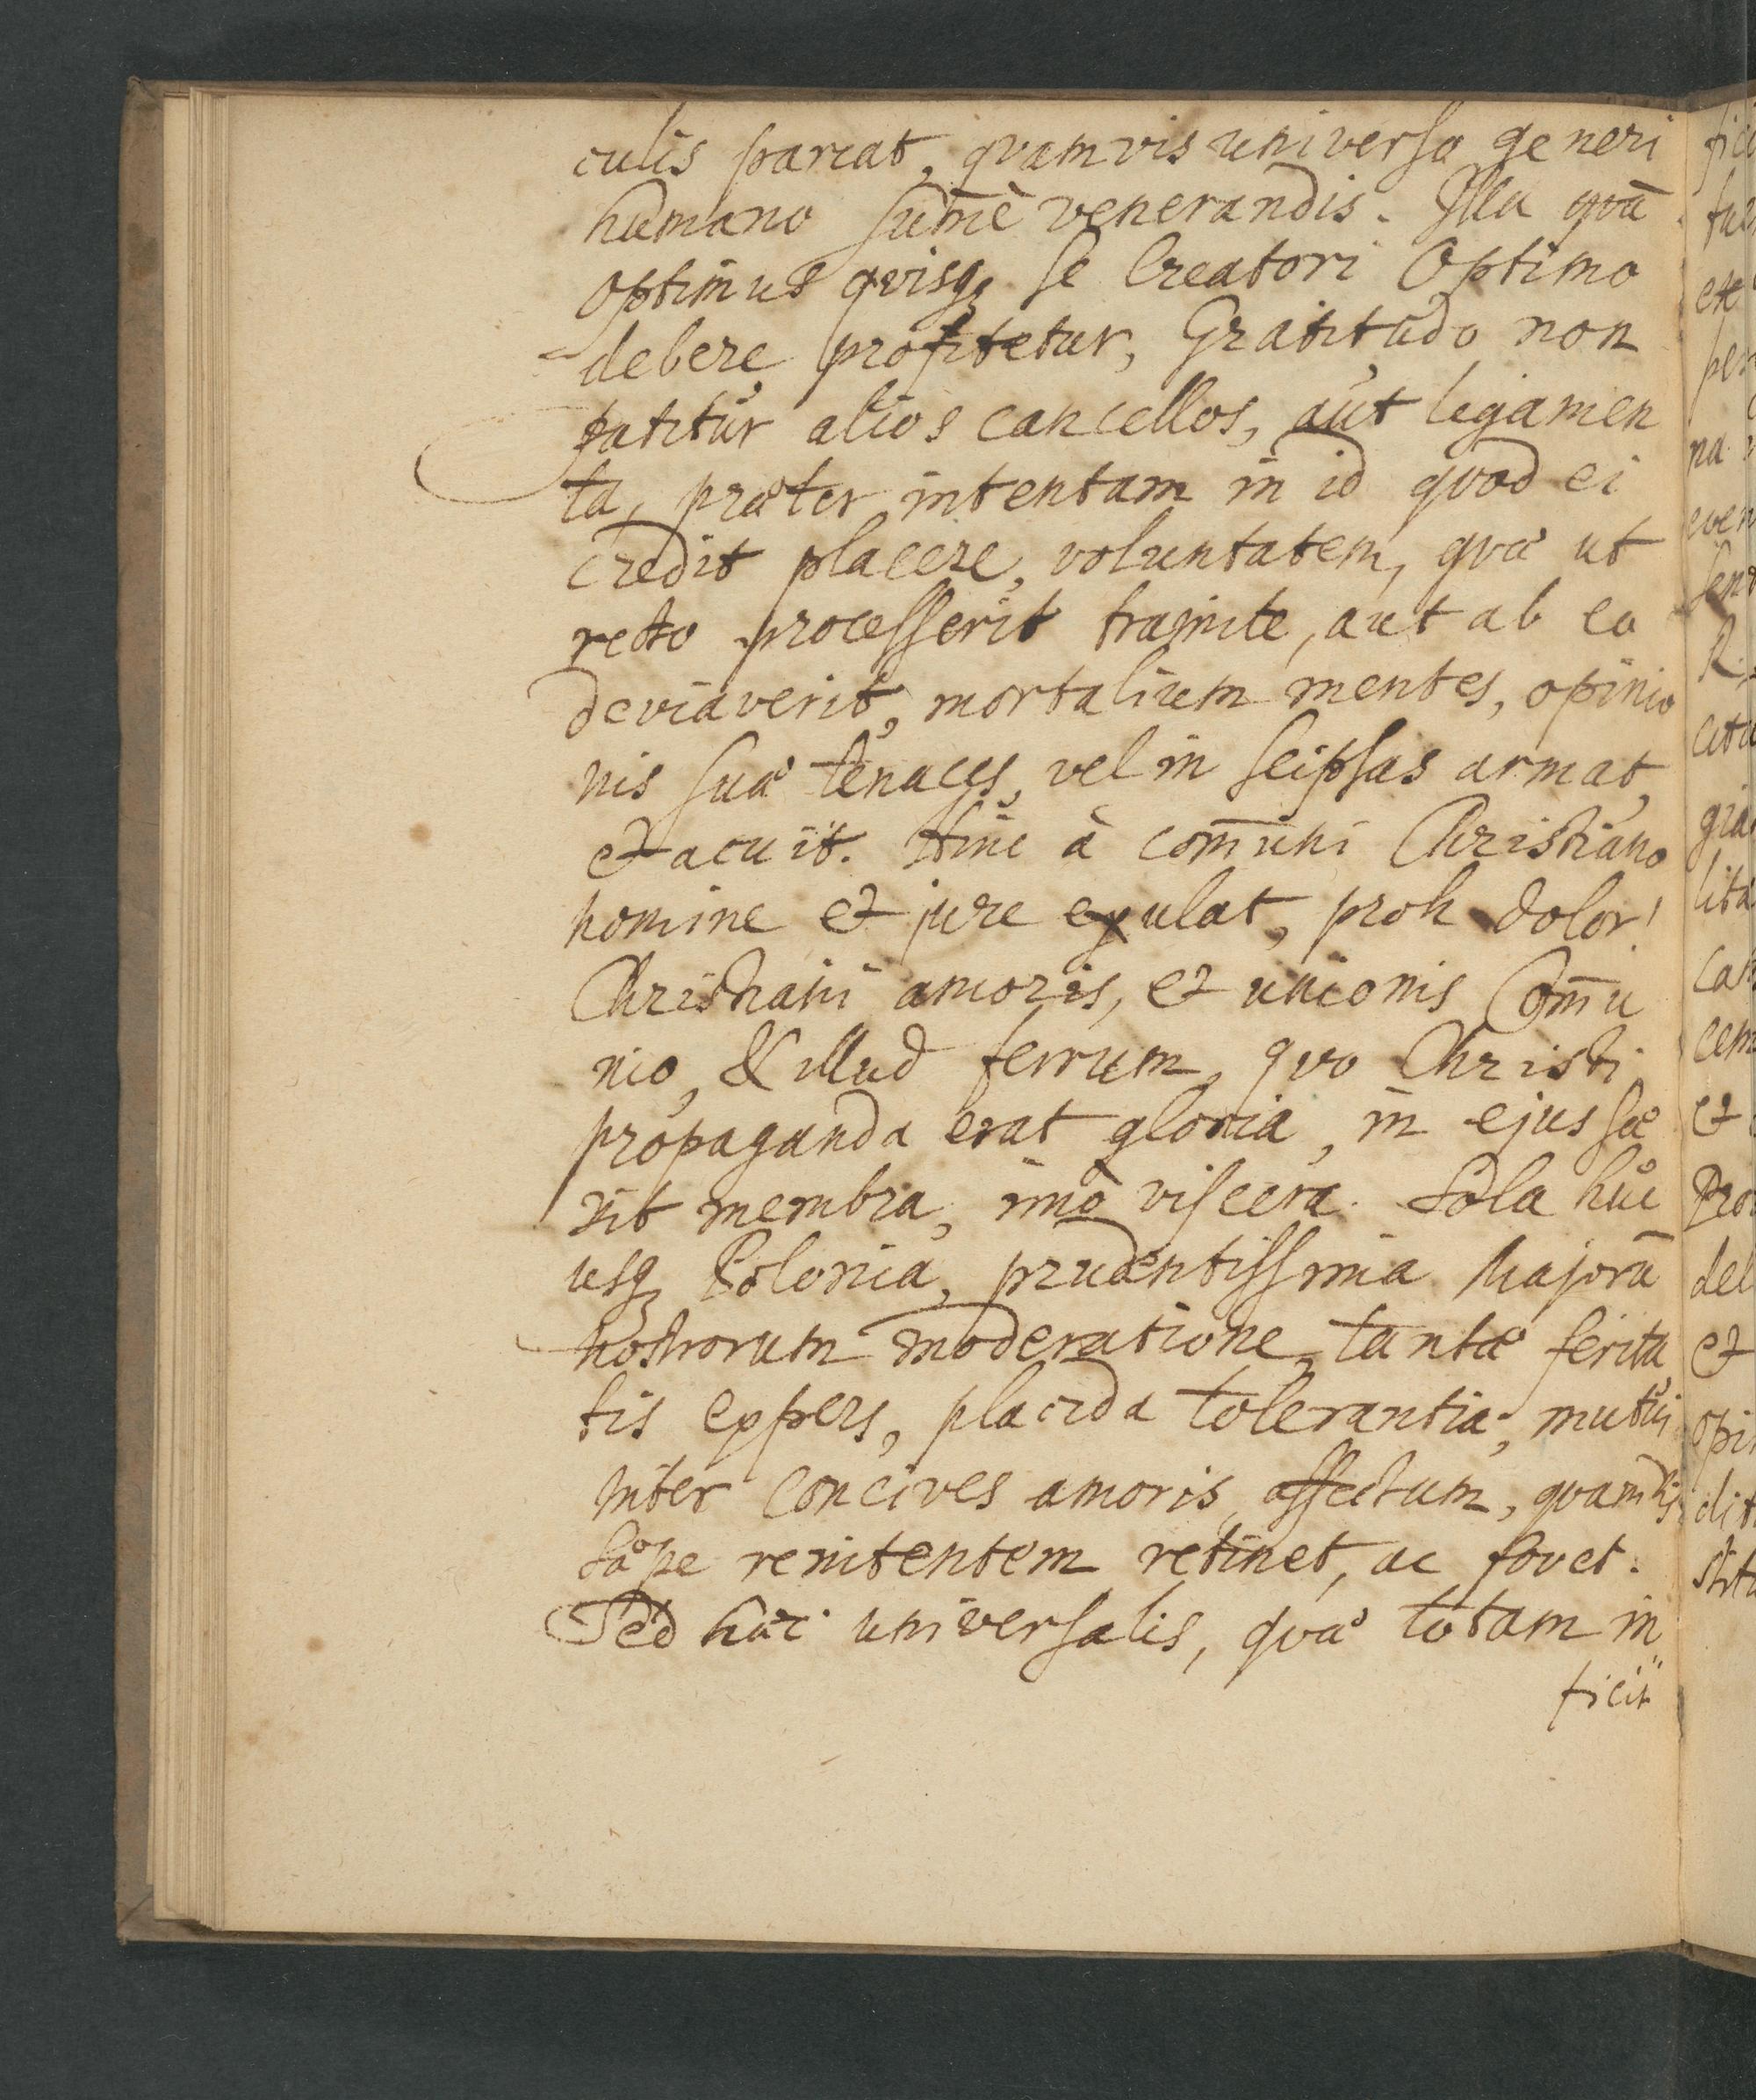 culis parcat, quamvis universo generi
humano sum̄è venerandis. Illa quā
optimus quisq; se Creatori Optimo
debere profitetur, Gratitudo non
patitur alios cancellos, aut ligamen
ta, præter intentam in id quod ei
credit placere, voluntatem, quæ ut
recto processerit tramite, aut ab eo
deviaverit, mortalium mentes, opinio
nis suæ tenaces, vel in seipsas armat,
et acuit. Hinc à com̄uni Christiano
nomine et jure exulat, proh dolor!
Christiani amoris, et unionis Com̄u
nio, & illud ferrum, quo Christi
propaganda erat gloria, in ejus sæ
vit membra, imò viscera. Sola huc
usq; Polonia, prudentissima Majorū
nostrorum moderatione, tantæ ferita
tis expers, placida tolerantia, mutui
inter concives amoris affectum, quamvis
sæpe renitentem retinet, ac fovet.
Sed hæc universalis, quæ totam in
ficit